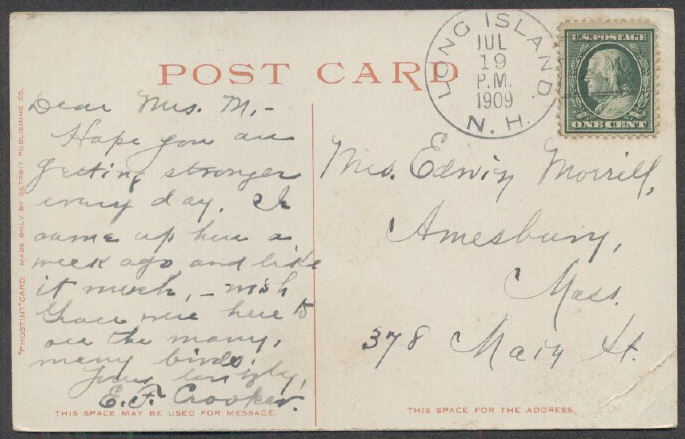 POST CARD
LONG ISLAND.
JUL
19
P.M.
1909
N.H.
U.S. POSTAGE
ONE CENT
Dear Mrs. M,-
Hope you are
getting stronger
every day. I
came up here a
week ago and like
it much, - wish
Grace were here to
see the many,
many birds.
Yours
E.F. Crooker.
Mrs. Edwin Morrill,
Amesbury,
Mass.
378 Main St.
"PHOSTINT" CARD MADE ONLY BY DETROIT PUBLISHING CO.
THIS SPACE MAY BE USED FOR MESSAGE.
THIS SPACE FOR THE ADDRESS.